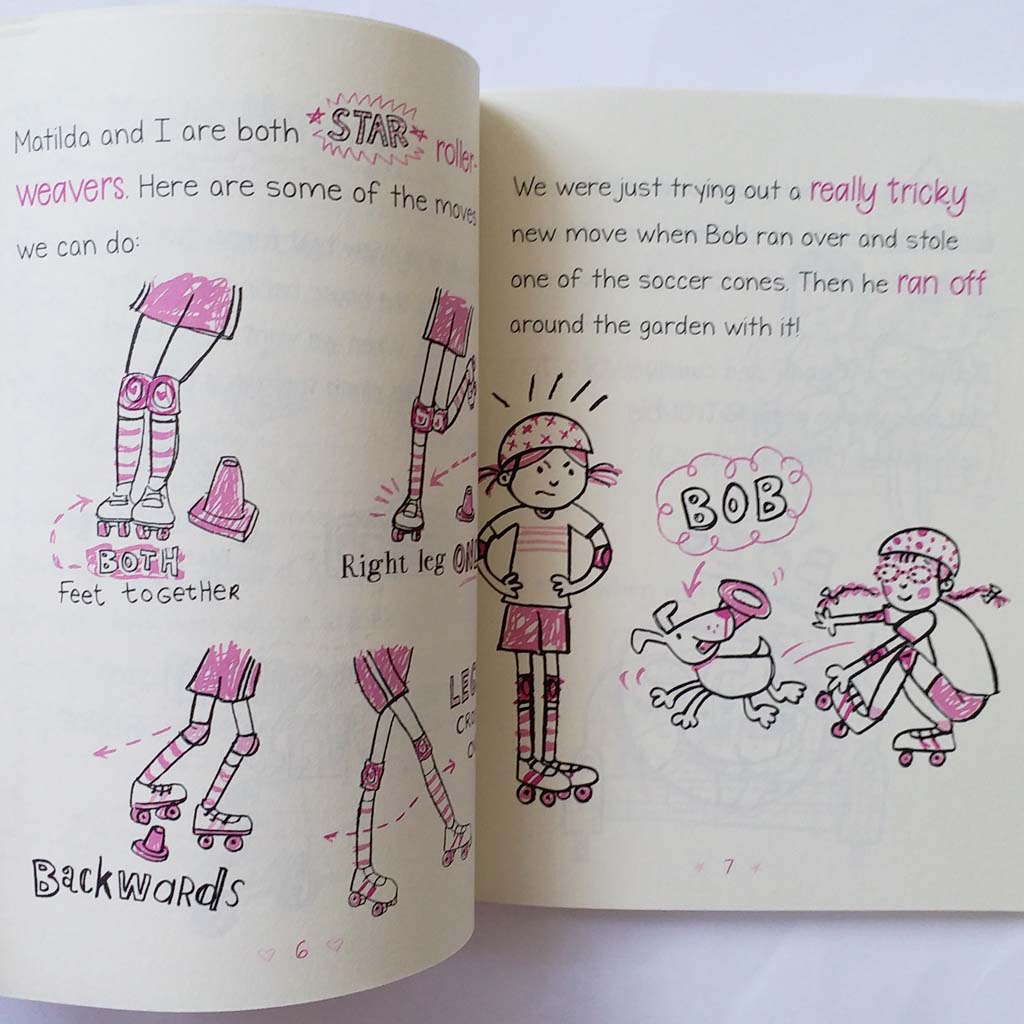 Matilda and I are both STAR roller-
weavers. Here are some of the moves
we can do:
BOTH
Feet together
Right leg
Backwards
6
We were just trying out a really tricky
new move when Bob ran over and stole
one of the soccer cones. Then he ran off
around the garden with it!
BOB
7